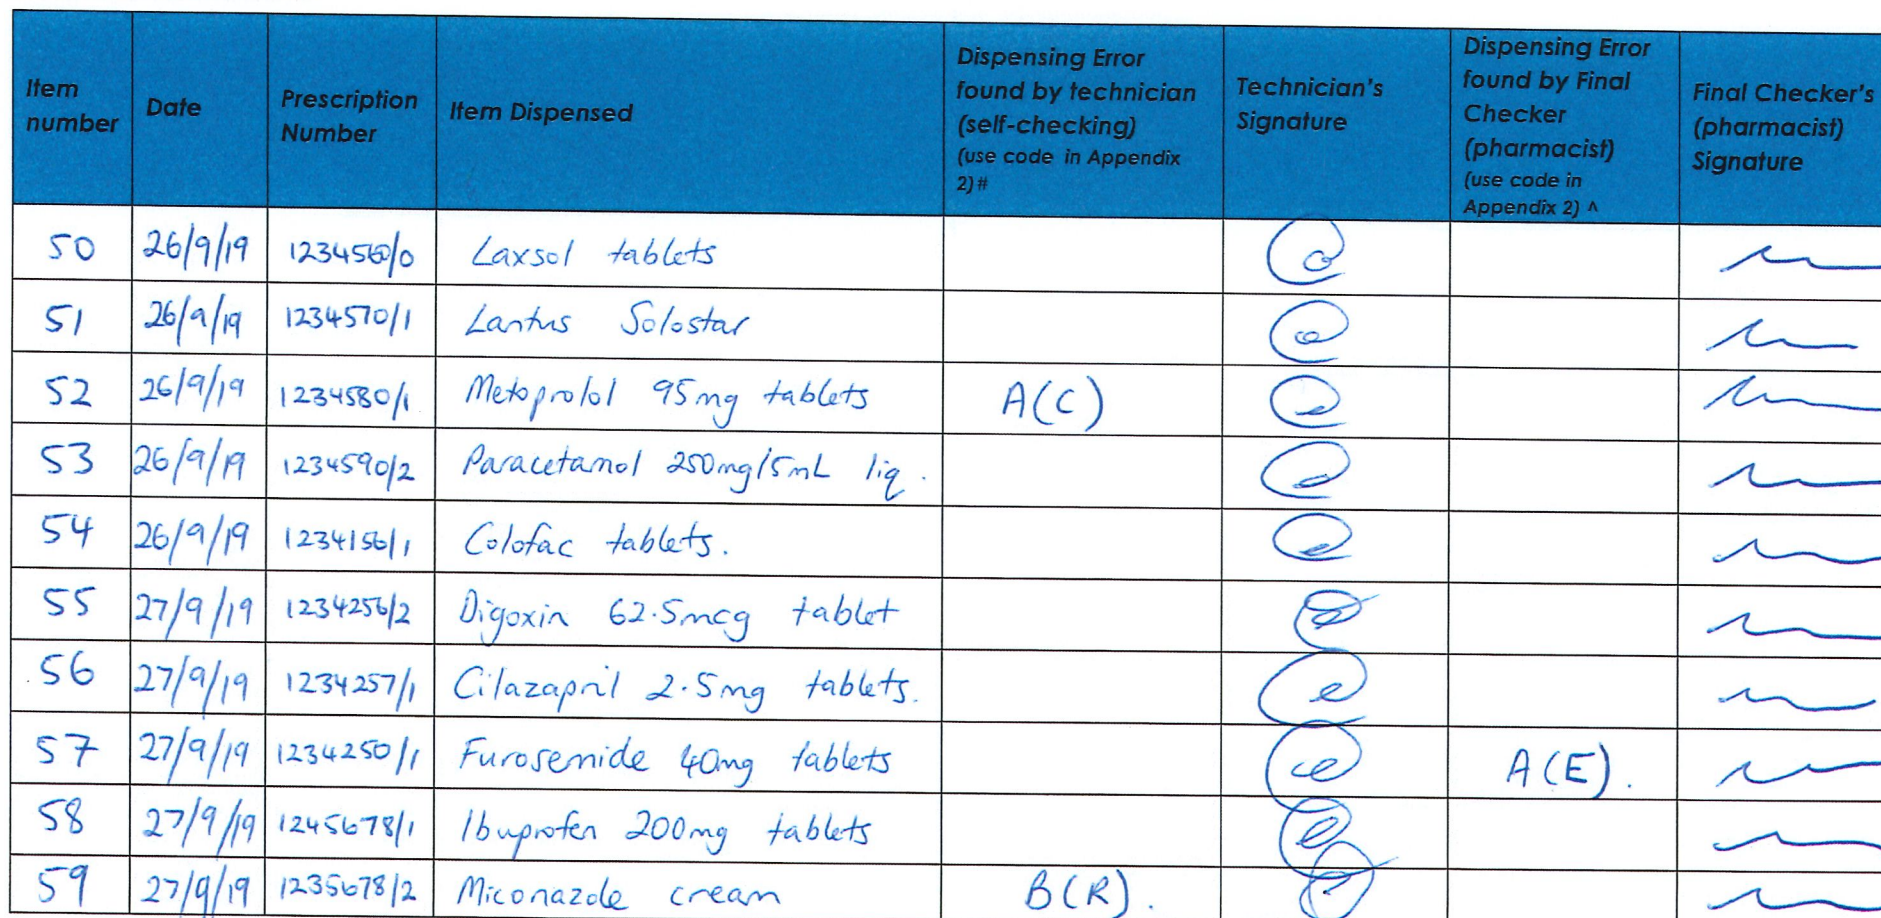 Item number
Date
Prescription Number
Item Dispensed
Dispensing Error found by technician (self-checking) (use code in Appendix 2)#
Technician's Signature
Dispensing Error found by Final Checker (pharmacist) (use code in Appendix 2) ^
Final Checker's (pharmacist) Signature
50 26/9/19 1234560/0 Laxsol tablets
51 26/9/19 1234570/1 Lantus Solostar
52 26/9/19 1234580/1 Metoprolol 95mg tablets A(C)
53 26/9/19 1234590/2 Paracetamol 250mg/5mL liq.
54 26/9/19 1234156/1 Colofac tablets.
55 27/9/19 1234256/2 Digoxin 62.5mcg tablet
56 27/9/19 1234257/1 Cilazapril 2.5mg tablets.
57 27/9/19 1234250/1 Furosemide 40mg tablets A(E).
58 27/9/19 1245678/1 Ibuprofen 200mg tablets
59 27/9/19 1235678/2 Miconazole cream B(R).